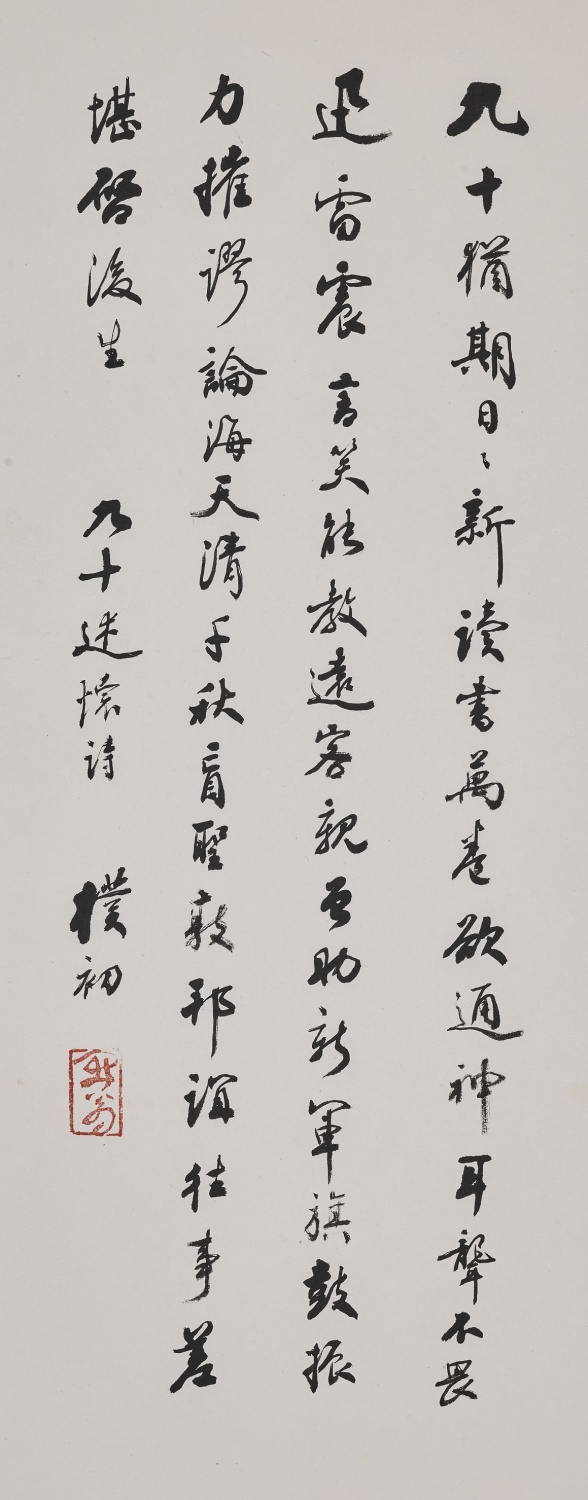 九十猶期日〻新读書萬卷欲通神耳聾不畏
迅雷震言笑能教遠客親曾助新軍旗鼓振
力摧謬論海天清千秋盲聖敦邦誼往事差
堪啓後生
九十述懷詩
樸初